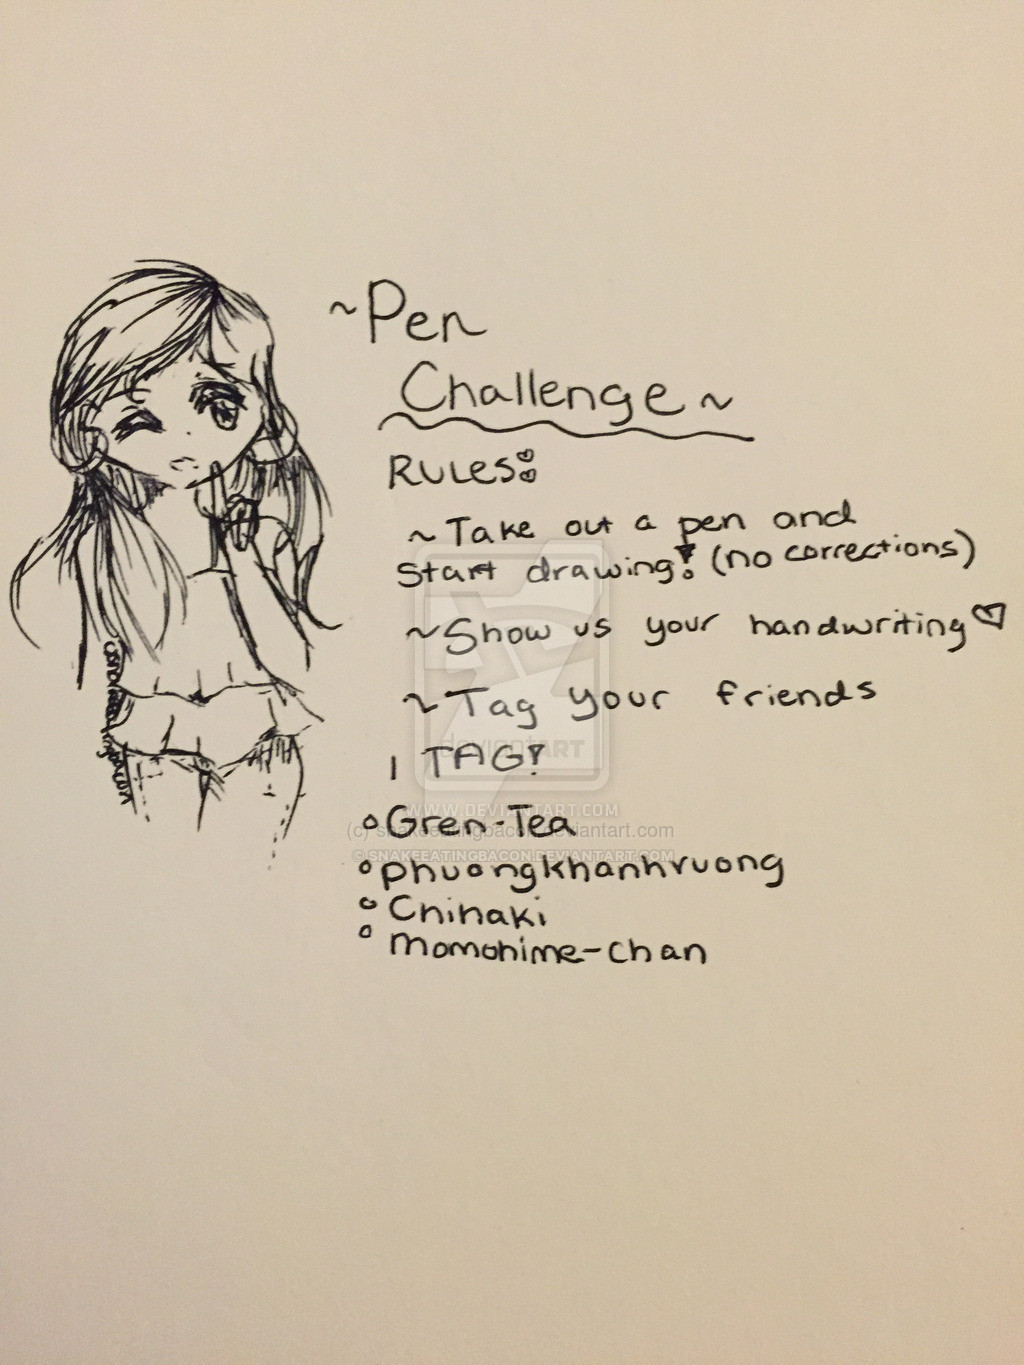 ~Pen
Challenge~
RULES:
~Take out a pen and
start drawing! (no corrections)
~Show us your handwriting ♡
~Tag your friends
I TAG!
Gren-Tea
phuongkhanhvuong
Chihaki
momohime-chan
©snakeeatingbacon
deviantART
WWW.DEVIANTART.COM
(c) snakeeatingbacon.deviantart.com
© SNAKEEATINGBACON.DEVIANTART.COM